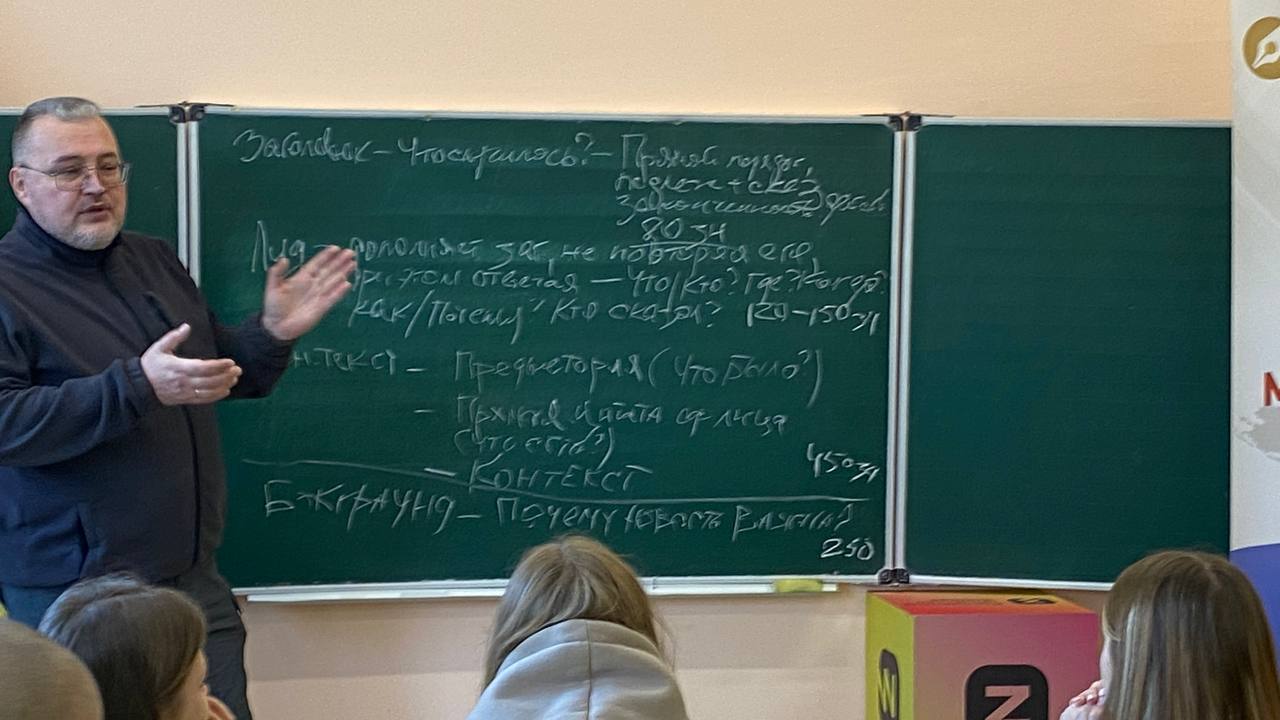 Заголовок – Что случилось? – Прямой порядок,
подлеж + сказ
законченность
80 зн
Лид – дополняет заг, не повторяя его,
при этом отвечая – Что/Кто? Где? Когда?
Как/Почему? Кто сказал? 120-150 зн
нтекст – Предыстория (Что было?)
– Прямая цитата лица
(что есть?)
450 зн
– Контекст
Бэкграунд – Почему новость важна?
250
W
N